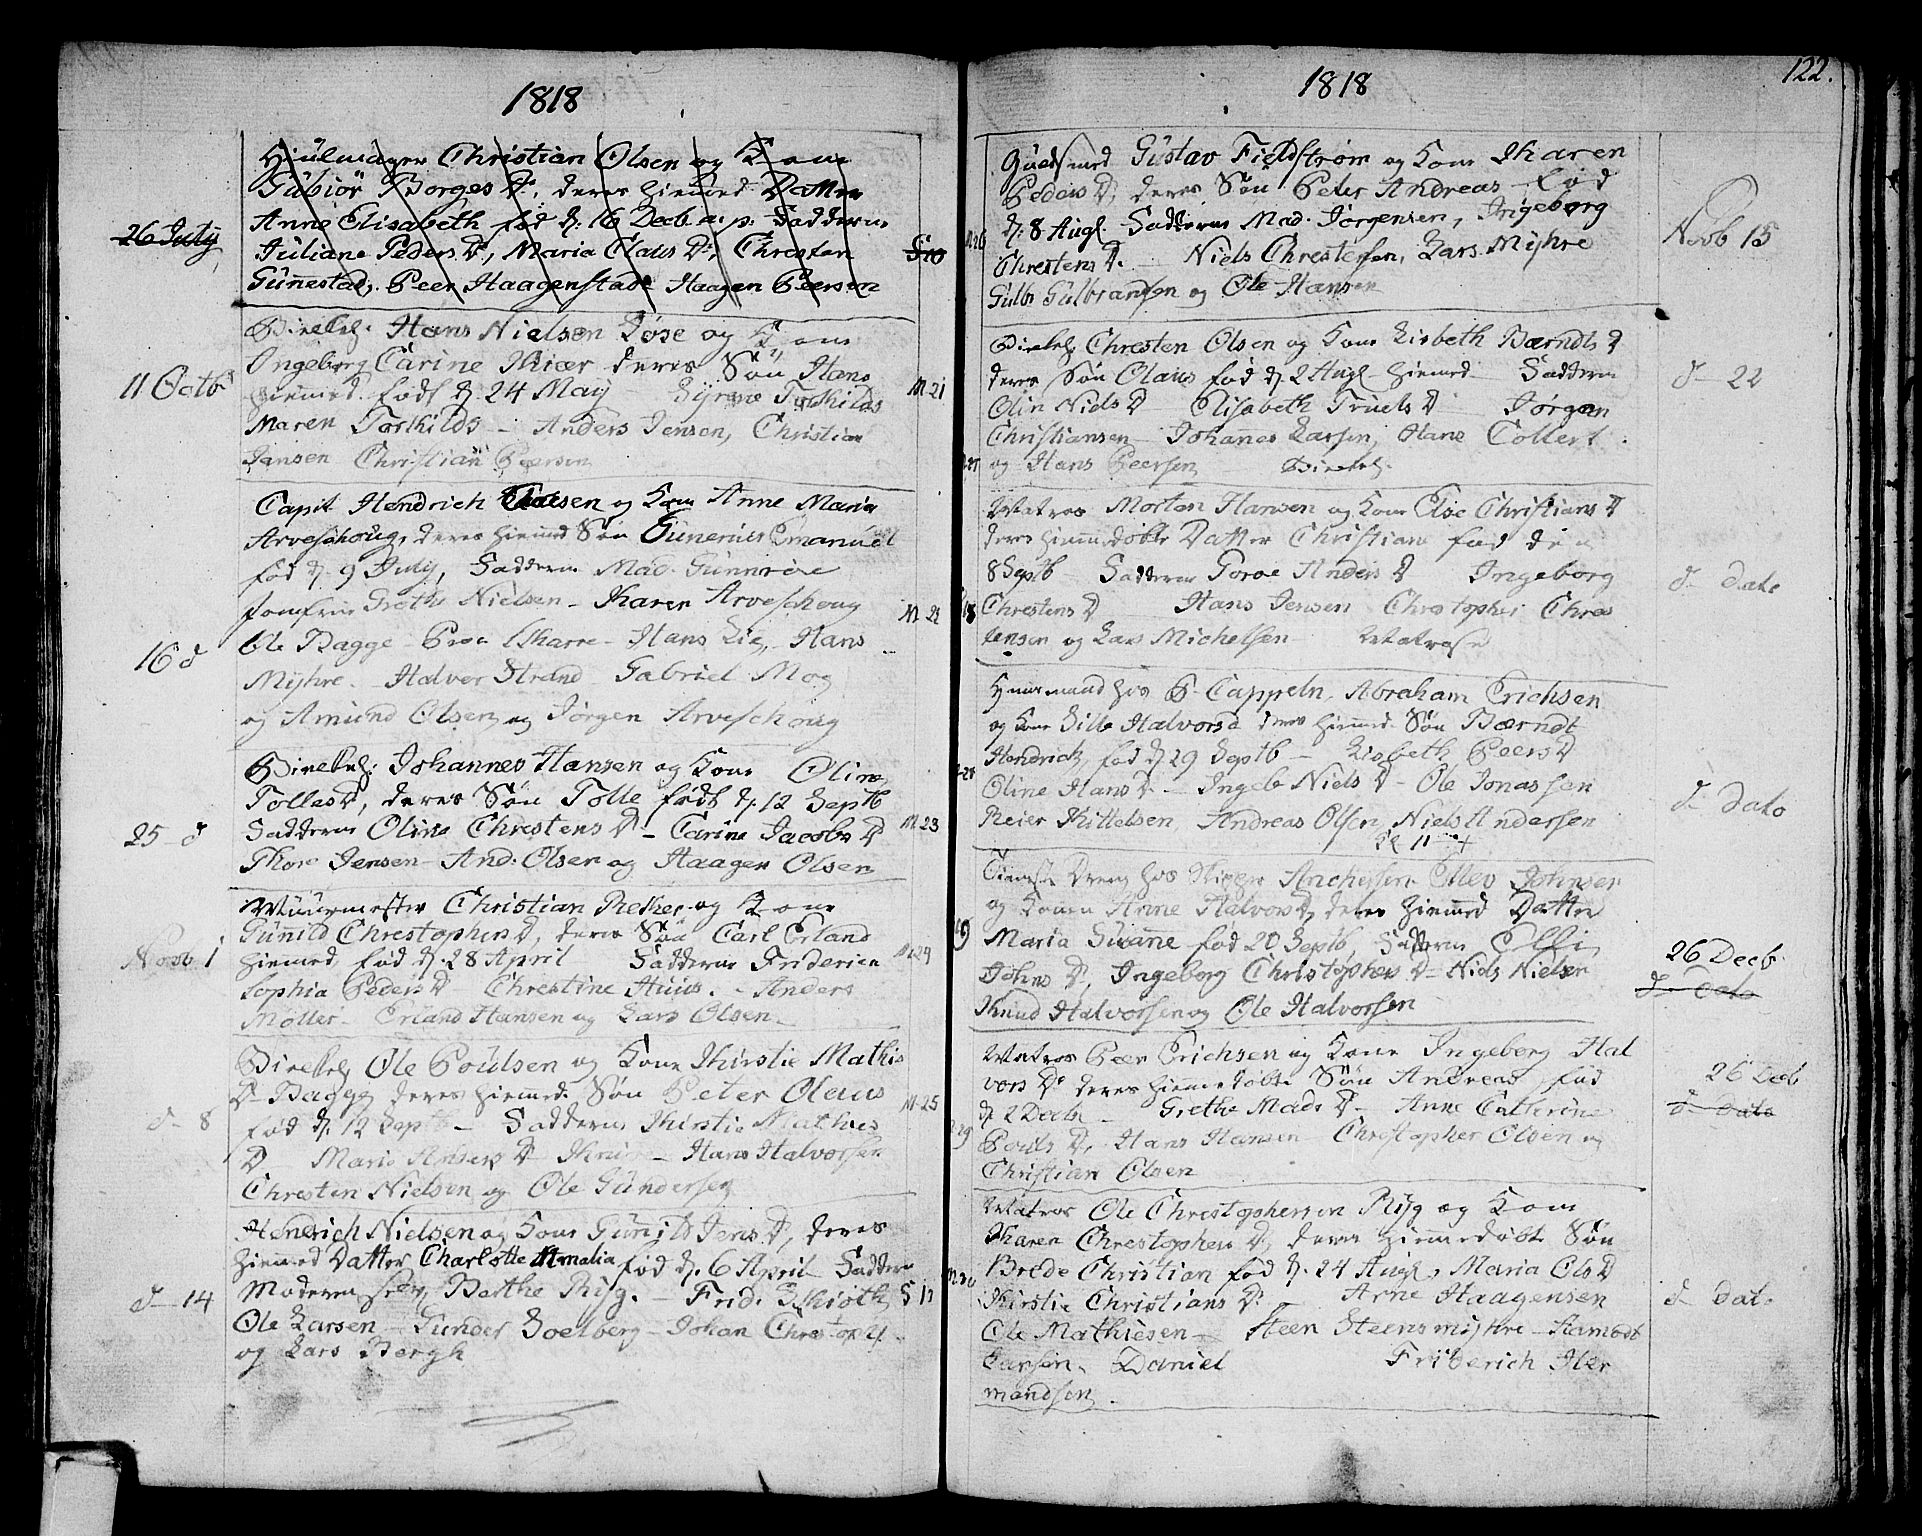 1818
26 July
Hiulmager Christian Olsen og Kone
Gubiör Borges D. deres hiemed. Datter
Anne Elisabeth fød d. 16 Decb. a. p. Fadderne
Juliane Peders D, Maria Claus D, Chresten
Gunnestad, Peer Haagenstad Haagen Peersen
11 Octb
Hans Nielsen Löse og Kone
Ingeborg Carine Kiær deres Søn Hans
hiemmed. født d. 24 May Torkilds
Maren Torkilds - Anders Jensen, Christian
Jansen Christian Peersen
M. 21
Capit Hendrich Claesen og Kone Anne Maria
Arveschoug, deres hiemed Søn Gunerius Emanuel
fød d. 9 July, Fadderne Mad. Gunnerøe
Jomfrue Grethe Nielsen - Karen Arveschoug
M. 22
16 d
Ole Bagge - Peer Skarre - Hans Lie, Hans
Myhre - Halver Strand - Gabriel Mog
og Amund Olsen og Jörgen Arveschoug
Johannes Hansen og Kone Oline
Tolles D, deres Søn Tolle født d. 12 Septb
25 d
Fadderne Oline Chrestens D - Carine Jacobs D
M. 23
Thore Jensen - And. Olsen og Haagen Olsen
Muurmester Christian Retker og Kone
Gunild Chrestophers D, deres Søn Carl Erland
Novb 1
hiemed, fød d. 28 April Fadderne Friderica
M. 24
Sophia Peders D - Chrestine Huus. - Anders
Møller - Erland Hansen og Lars Olsen
Ole Poulsen og Kone Kirstie Mathis
D - Bagge deres hiemmed. Søn Peter Olaus
d - 8
fød d. 12 Septb - Fadderne Kirstie Mathies
M. 25
D Maria - Hans Halvorsen
Chresten Nielsen og Ole Gundersen
Henrich Nielsen og Kone Gunild Jens D, deres
hiemmed Datter Charlotte Amalia fød d. 6 April Faddere
d - 14
Moderen selv, Berthe Riig. - Frid. Schiøth
Ole Larsen - Gunder Soelberg - Johan Chrestoph.
og Lars Bergh
122.
1818
Guldsmed Gustav Fieldstrøm og Kone Karen
Peders D, deres Søn Peter Andreas - fød
d. 8 Augl. Fadderne Mad. Jörgensen, Ingeborg
Novb 15
Chrestens D. - Niels Chrestensen, Lars Myhre
Gulbr Gulbransen og Ole Hansen
Chresten Olsen og Kone Lisbeth Bærndts D
deres Søn Olaus fød d. 2 Augl - hiemed - Fadderne
d - 22
Olin Niels D Elisabeth Truels D Jörgen
Christiansen - Johannes Larsen, Hans Collert
og Hans Peersen
Matros Morten Hansen og Kone Else Christians D
deres hiemmedöbte Datter Christiane fød den
8 Septb Fadderne Toroe Anders D Ingeborg
d - dato
Chrestens D Hans Jensen Christopher Chres
tensen og Lars Michelsen Matrose
Huusmand hos P. Cappeln, Abraham Erichsen
og Kone Sille Halvors D deres hiemmed. Søn Bærndt
Hendrich, fød d. 29 Septb - Lisbeth Peers D
Oline Hans D - Ingeb Niels D - Ole Jonassen
d - dato
Reier Kittelsen, Andreas Olsen, Niels Andersen
Tieneste Dreng hos Skipper Anchersen Ellev Johnsen
og Konen Anne Halvors D, deres hiemmed Datter
Maria Susanne fød 20 Septb, Fadderne
26 Decb.
Johns D, Ingeborg Christophers D - Niels Nielsen
d - Dato
Knud Halvorsen og Ole Halvorsen
Matros Peer Erichsen og Kone Ingeborg Hal
vors D. deres hiemmedöbte Søn Andreas, fød
26 Decb
d. 2 Decbr - Grethe Mads D - Anne Catherine
d - Dato
Pouls D, Hans Hansen - Christopher Olsen og
Christian Olsen
Matros Ole Chrestophersen Riig og Kone
Karen Chrestophers D, deres hiemmedöbt Søn
Brede Christian fød d. 24 Augl, Maria Ols D
M. 30
Kirstie Christians D. - Arne Haagensen
d - dato
Ole Mathiesen - Steen Steensmyhre -
Jansen, Daniel Friderich Her
mandsen.